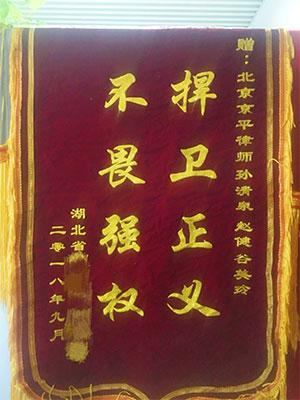 赠：北京京平律师孙清泉 赵健 谷美玲
捍卫正义
不畏强权
湖北省
二零一八年九月